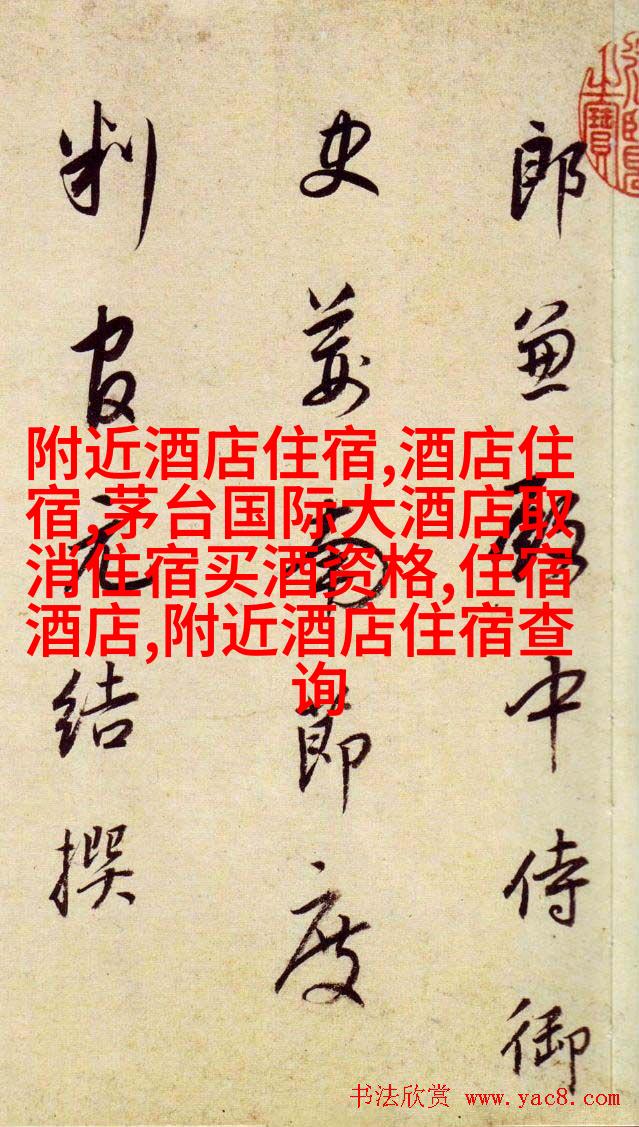 郎兼殿中侍御
史荊南節度
判官元結撰
附近酒店住宿,酒店住
宿,茅台国际大酒店取
消住宿买酒资格,住宿
酒店,附近酒店住宿查
询
书法欣赏 www.yac8.com